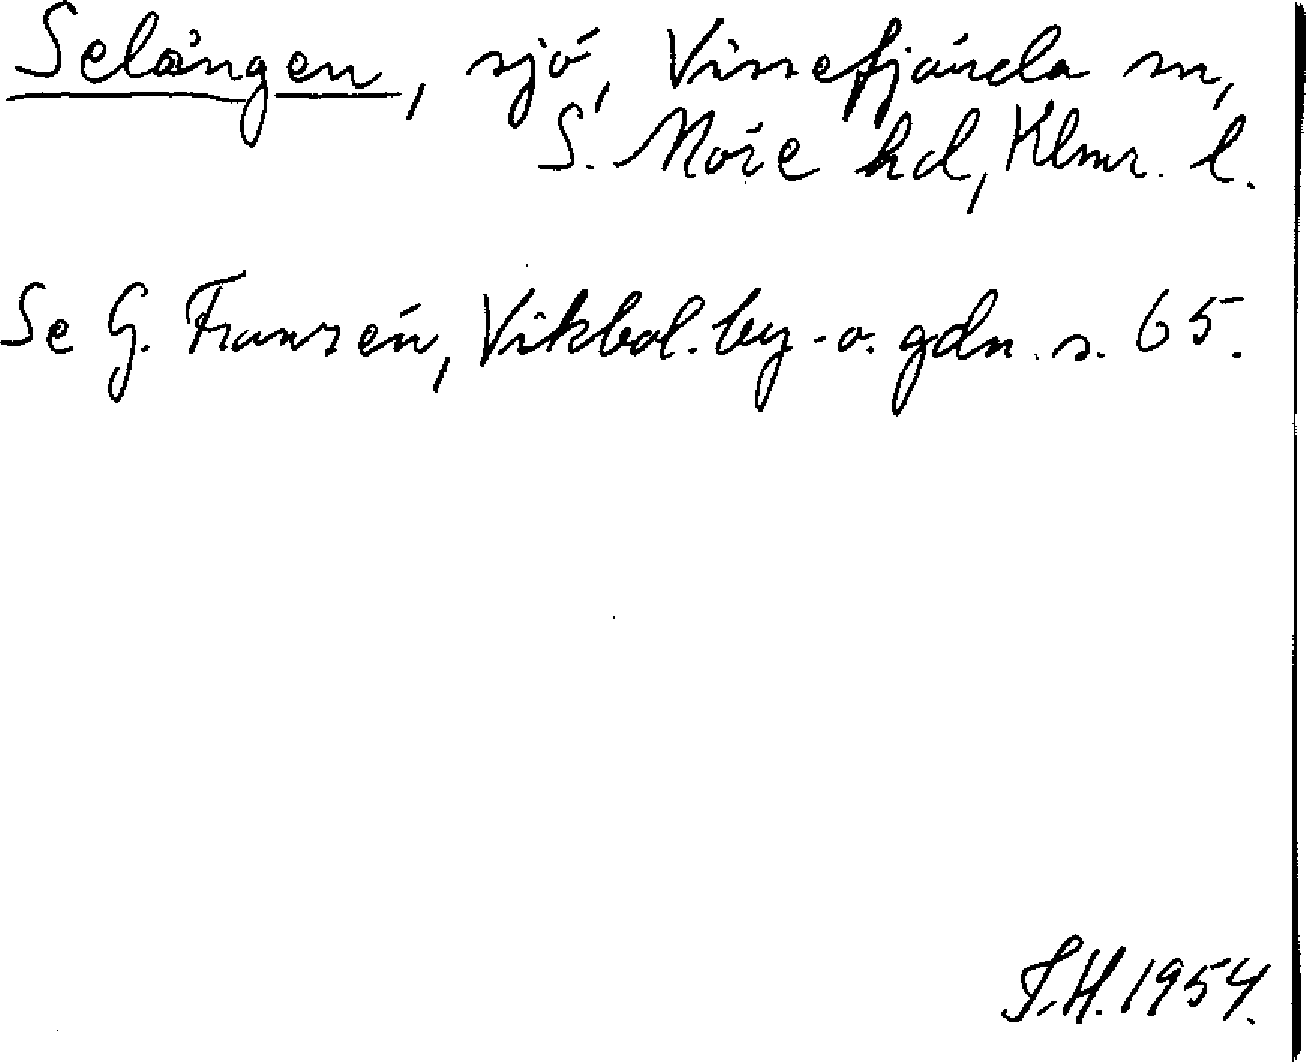 Selången, sjö, Vissefjärda sn,
S. Möre hd, Klmr. l.
Se G. Franzén, Vikbol. by- o. gdn. s. 65.
F.H. 1954.